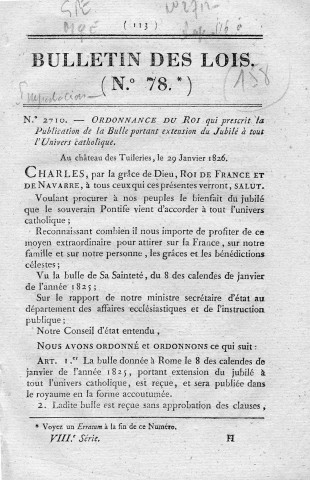 ( 113 )
BULLETIN DES LOIS.
( N.° 78. * )
158
N.° 2710. — ORDONNANCE DU ROI qui prescrit la
Publication de la Bulle portant extension du Jubilé à tout
l'Univers catholique.
Au château des Tuileries, le 29 Janvier 1826.
CHARLES, par la grâce de Dieu, ROI DE FRANCE ET
DE NAVARRE, à tous ceux qui ces présentes verront, SALUT.
Voulant procurer à nos peuples le bienfait du jubilé
que le souverain Pontife vient d'accorder à tout l'univers
catholique ;
Reconnaissant combien il nous importe de profiter de ce
moyen extraordinaire pour attirer sur la France, sur notre
famille et sur notre personne, les grâces et les bénédictions
célestes ;
Vu la bulle de Sa Sainteté, du 8 des calendes de janvier
de l'année 1825 ;
Sur le rapport de notre ministre secrétaire d'état au
département des affaires ecclésiastiques et de l'instruction
publique ;
Notre Conseil d'état entendu,
NOUS AVONS ORDONNÉ et ORDONNONS ce qui suit :
ART. 1.er La bulle donnée à Rome le 8 des calendes de
janvier de l'année 1825, portant extension du jubilé à
tout l'univers catholique, est reçue, et sera publiée dans
le royaume en la forme accoutumée.
2. Ladite bulle est reçue sans approbation des clauses,
* Voyez un Erratum à la fin de ce Numéro.
VIII.e Série. H